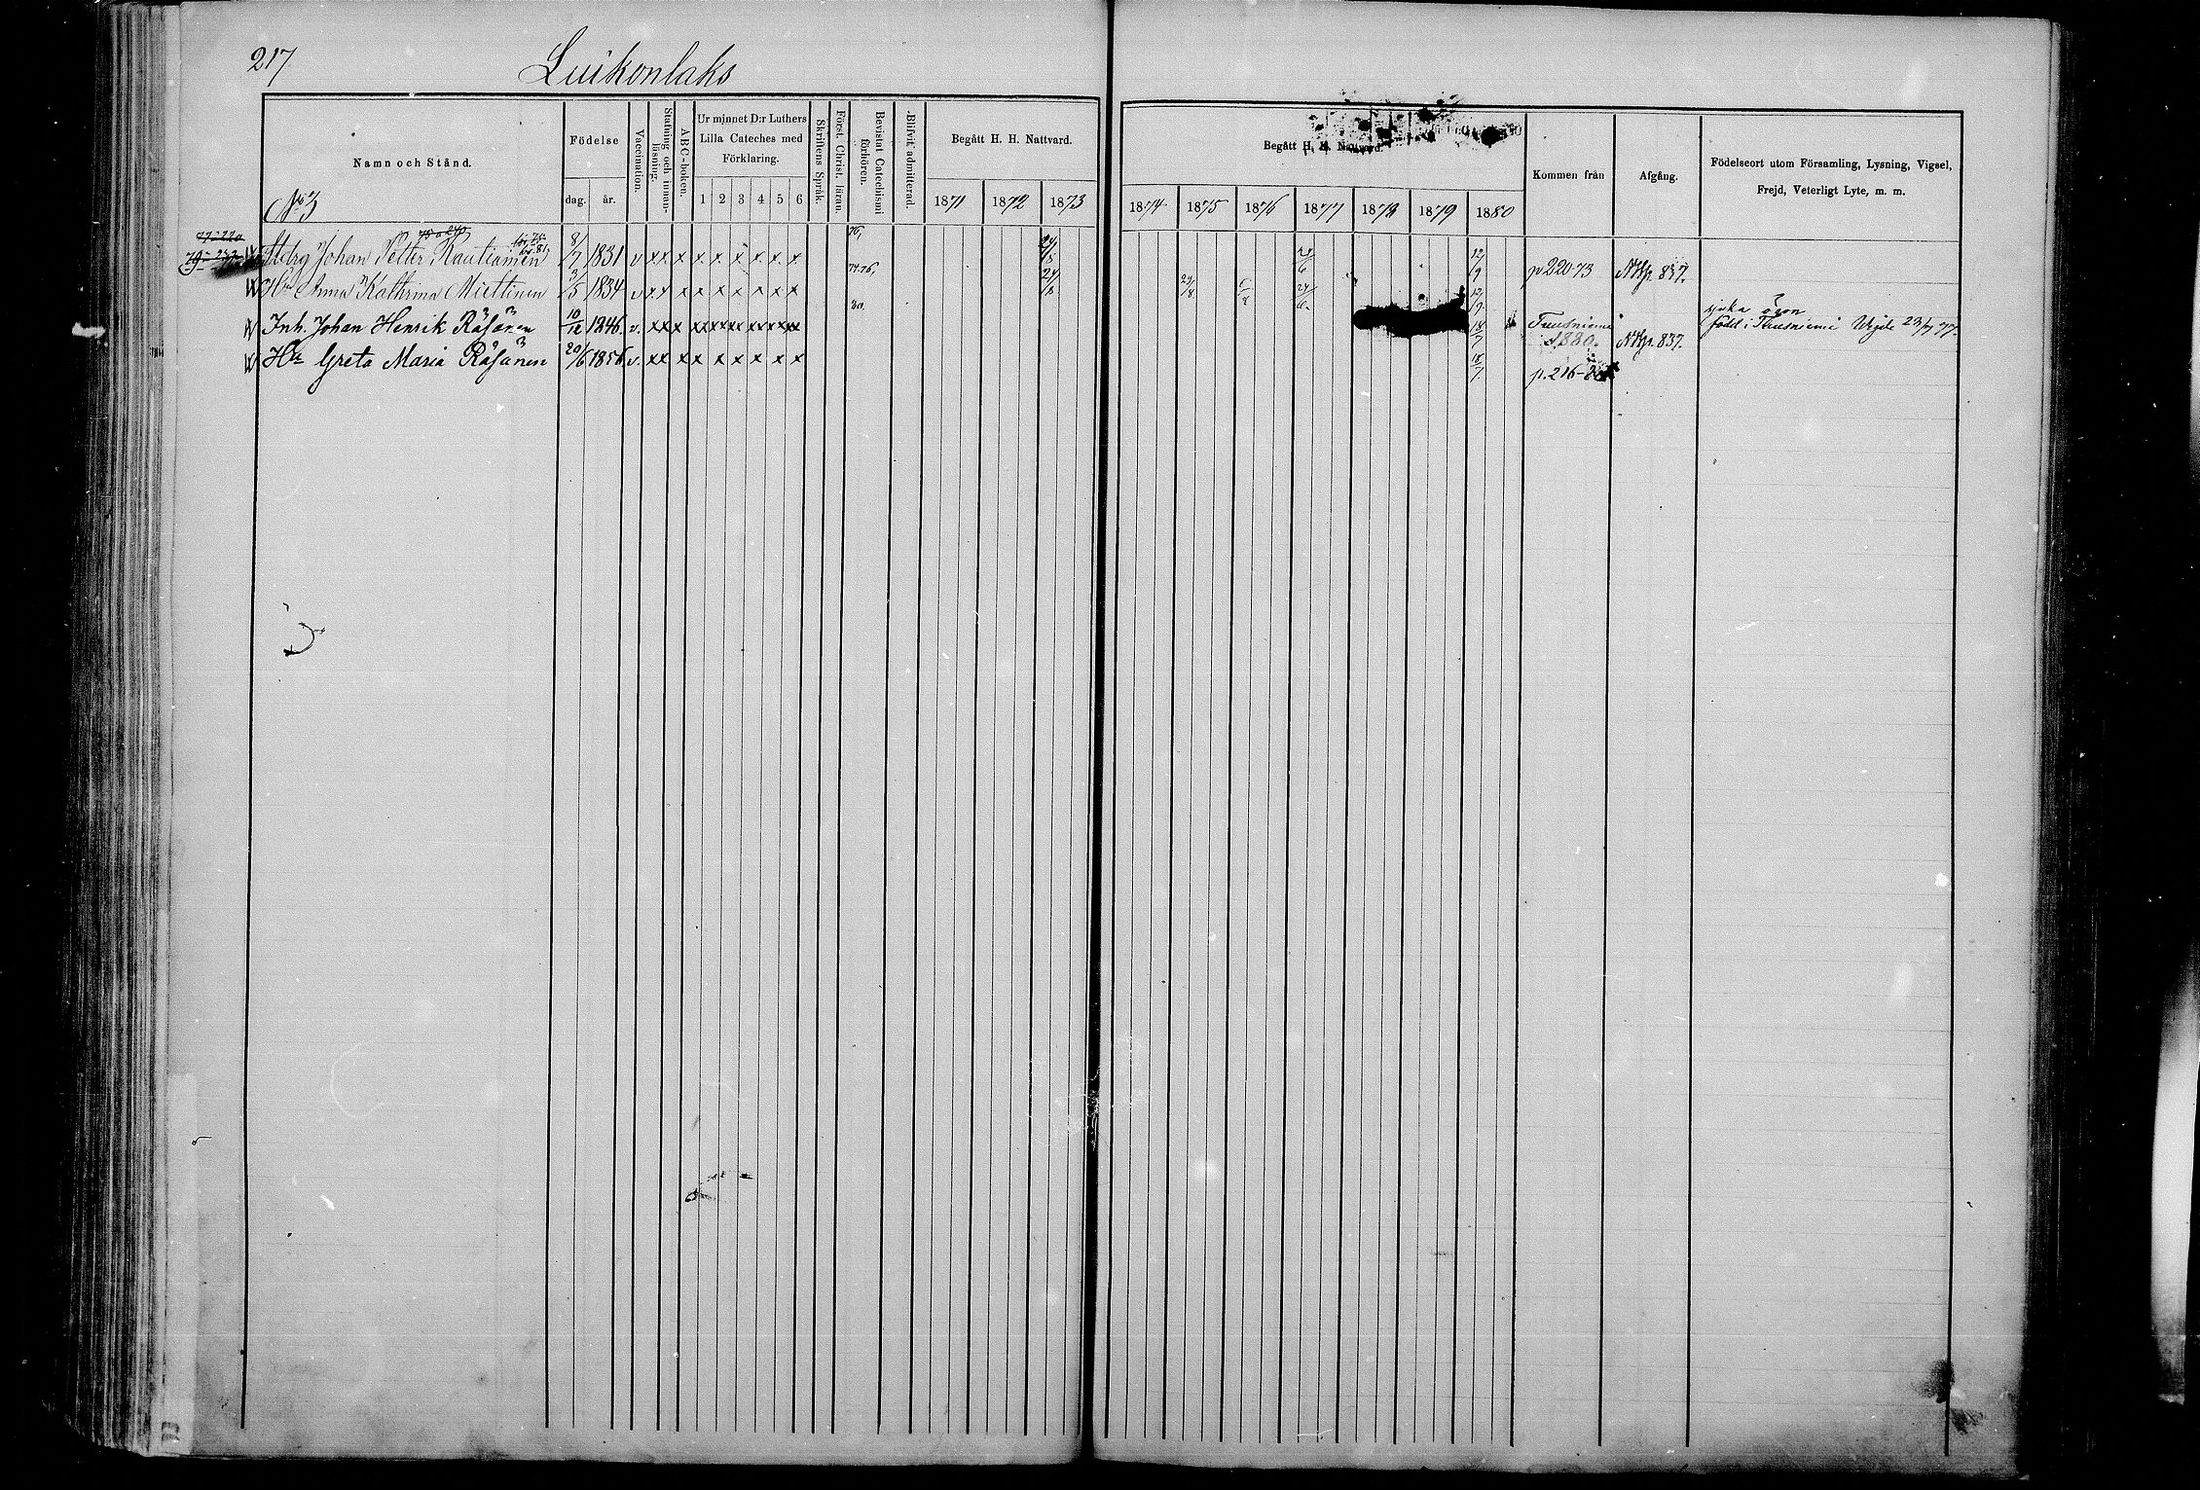 217
Luikonlaks
Namn och Stånd.
Födelse
dag. år.
Vaccination.
Stafning och innan-läsning.
ABC-boken.
Ur minnet D:r Luthers
Lilla Cateches med
Förklaring.
1 2 3 4 5 6
Skriftens Språk.
Först. Christ. läran.
Bevistat Catechismi förhören.
Blifvit admitterad.
Begått H. H. Nattvard.
1871 1872 1873
Begått H. H. Nattvard.
1874 1875 1876 1877 1878 1879 1880
Kommen från
Afgång.
Födelseort utom Församling, Lysning, Vigsel,
Frejd, Veterligt Lyte, m. m.
No 3
Johan Petter Rautiainen 8/7 1831 v x x x x x x x x x 24/8 12/9 p 220-73
Hu Anna Kathrina Miettinen 3/5 1834 v x x x x x x x x x 24/8 24/6 12/9
Inh. Johan Henrik Räsänen 10/12 1846 v. 18/7 Tuusniemi 1880. sjuka ögon född i Tuusniemi Vigde
Hu Greta Maria Räsänen 20/6 1856 v. x x x x x x x x x x 18/7 p. 216